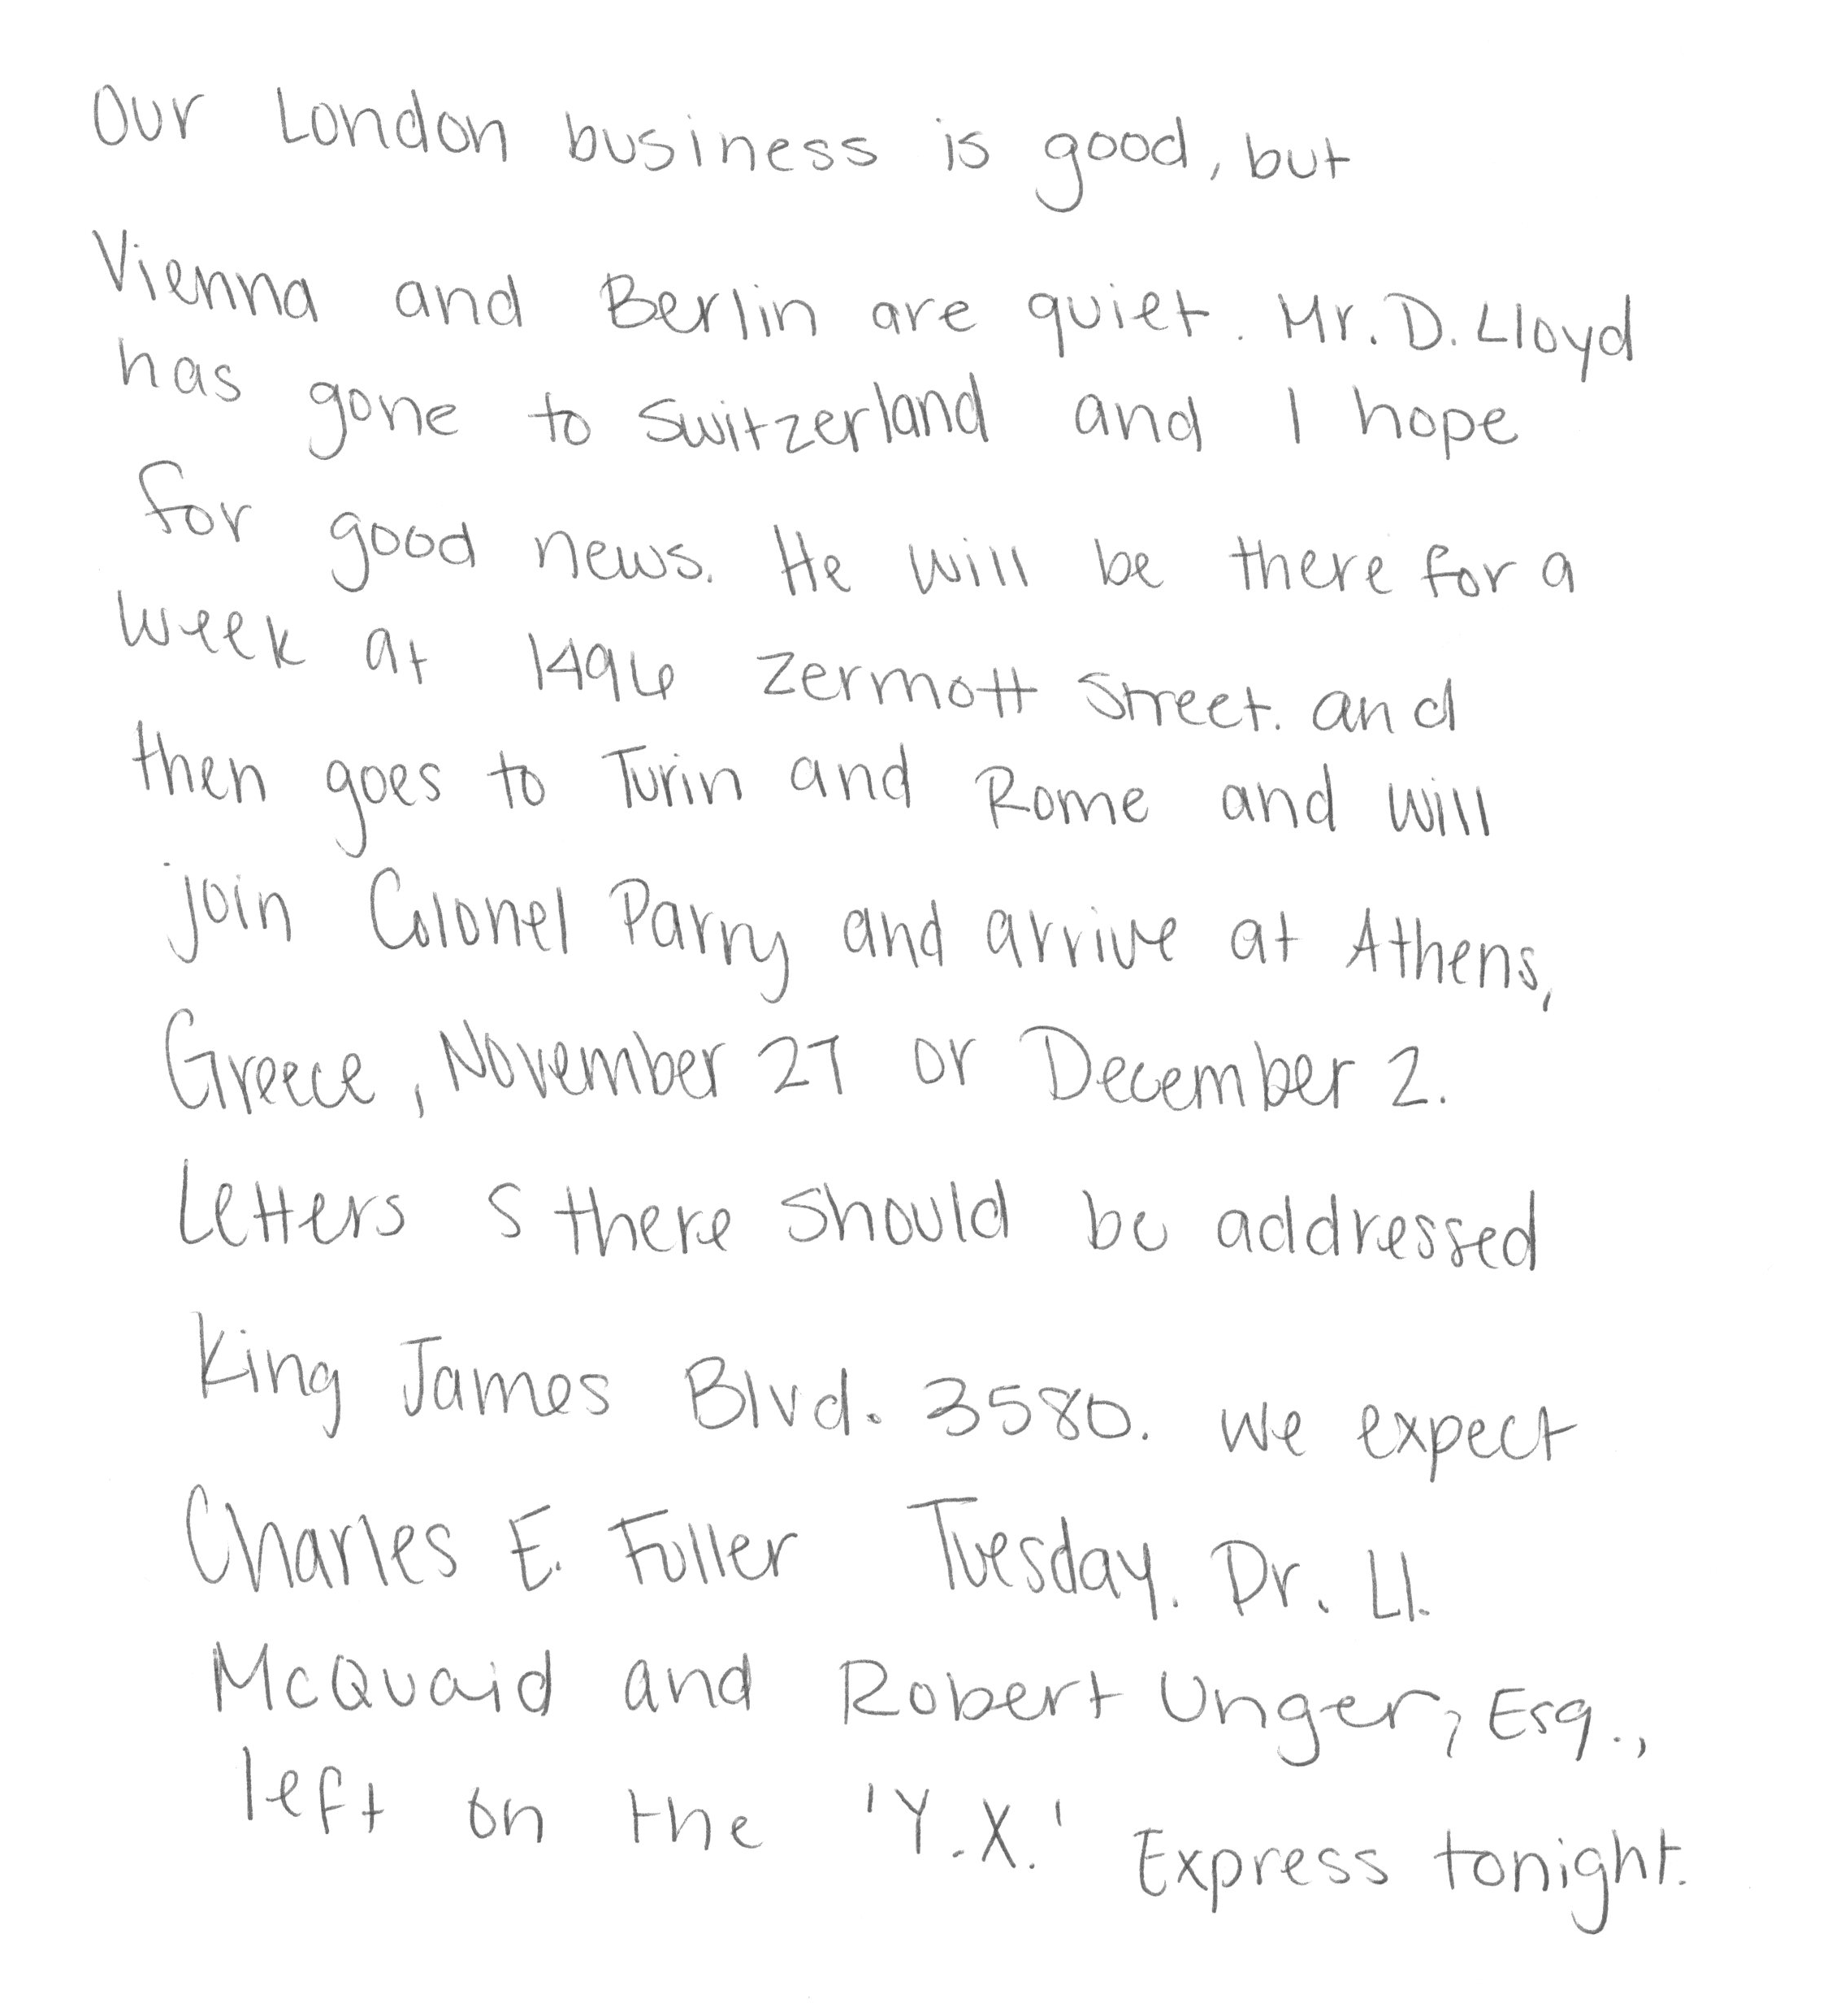 Our London business is good, but
Vienna and Berlin are quiet. Mr. D. Lloyd
has gone to Switzerland and I hope
for good news. He will be there for a
week at 1496 Zermott Street. and
then goes to Turin and Rome and will
join Colonel Parry and arrive at Athens,
Greece, November 27 or December 2.
Letters s there should be addressed
King James Blvd. 3580. We expect
Charles E. Fuller Tuesday. Dr. Ll.
McQuaid and Robert Unger, Esq.,
left on the 'Y.X.' Express tonight.